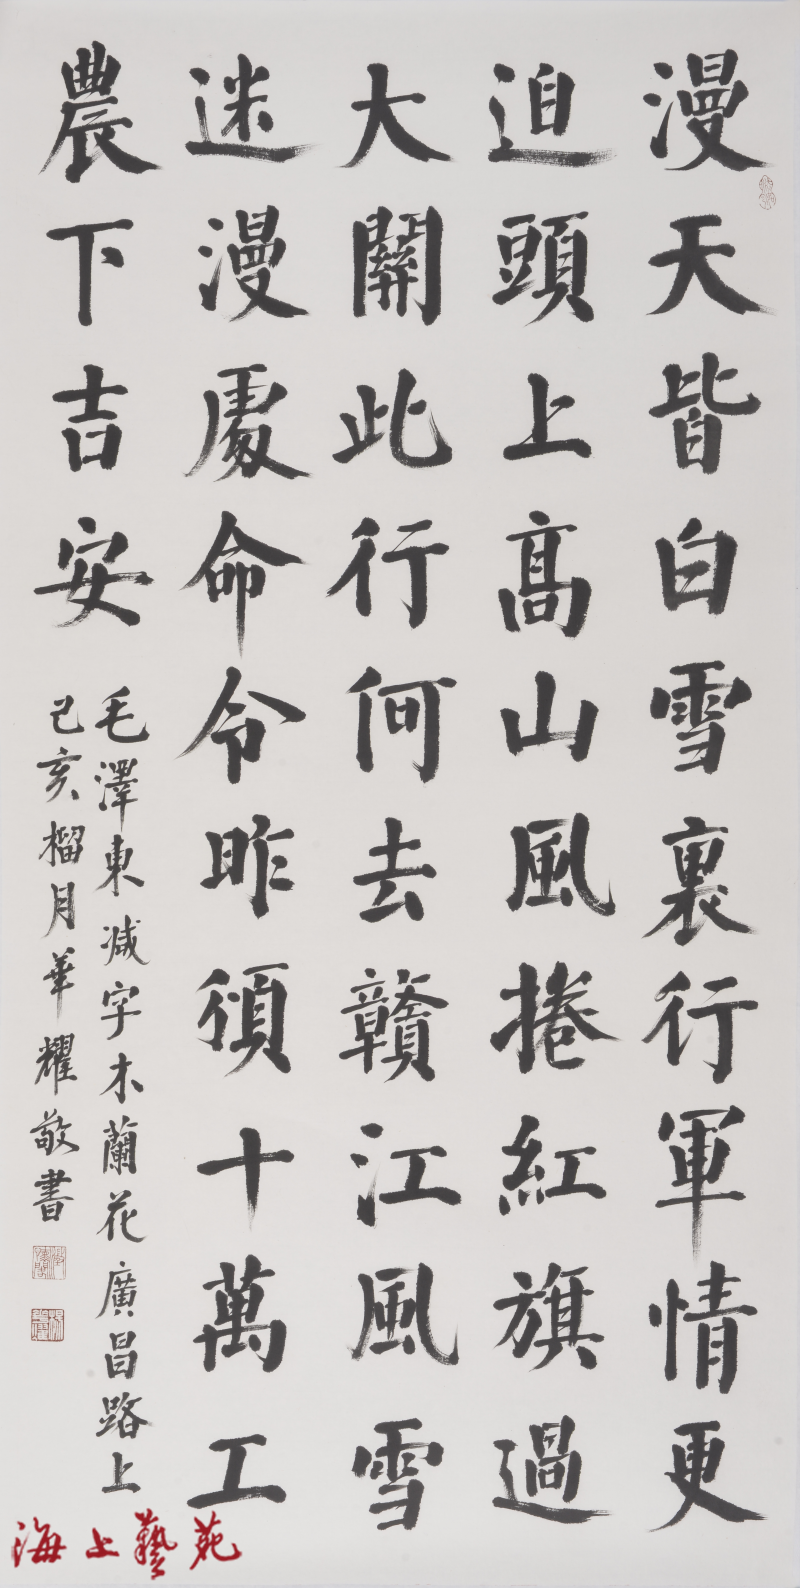 漫天皆白雪裏行軍情更
迫頭上高山風捲紅旗過
大關此行何去贛江風雪
迷漫處命令昨頒十萬工
農下吉安
毛澤東減字木蘭花廣昌路上
己亥榴月華耀敬書
海上藝苑